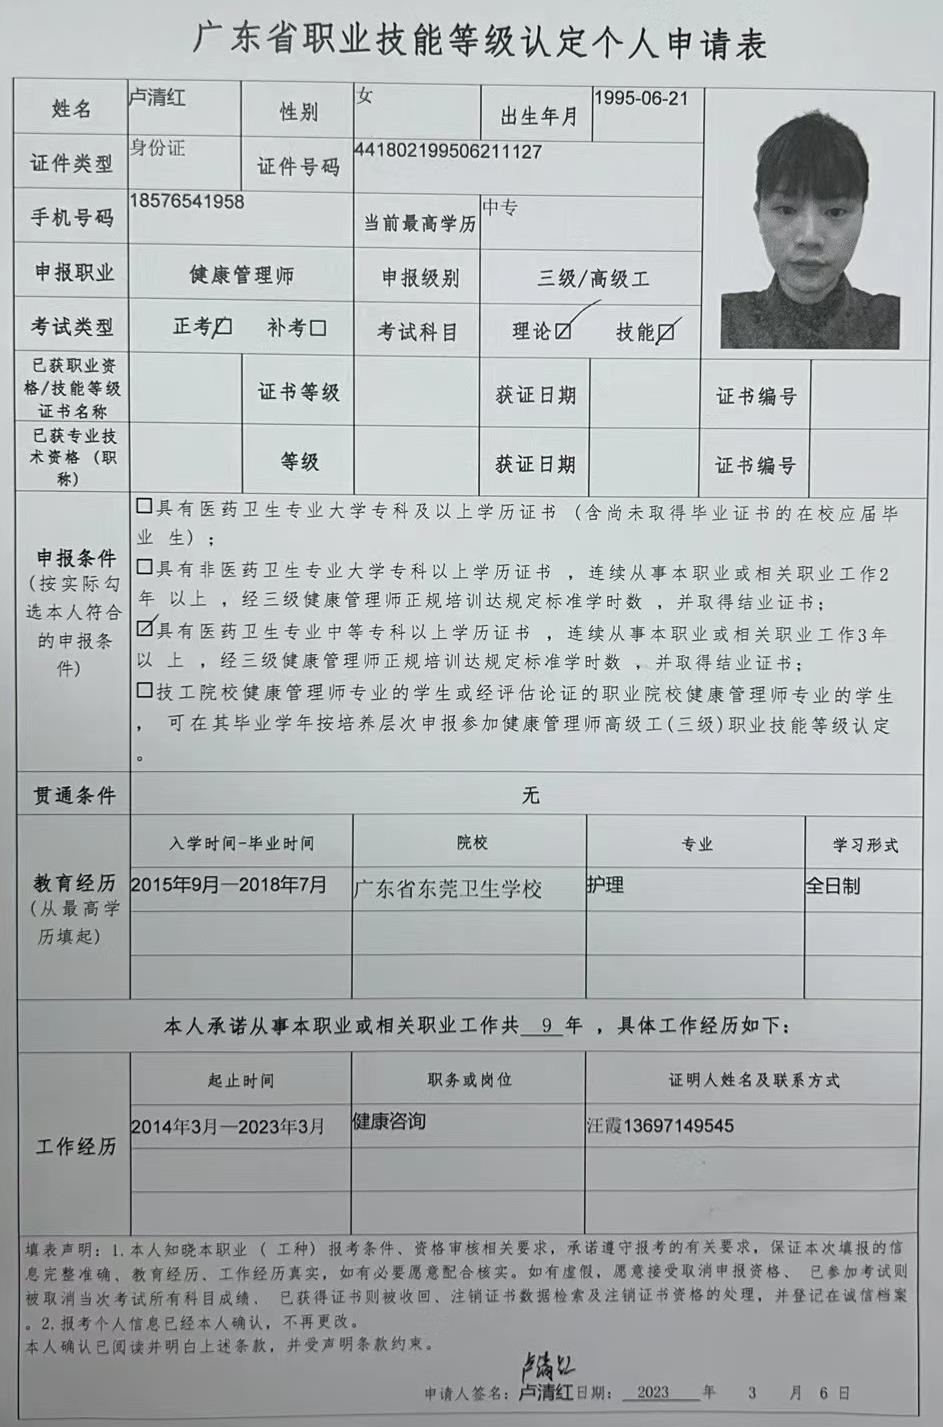 广东省职业技能等级认定个人申请表
姓名 卢清红 性别 女 出生年月 1995-06-21
证件类型 身份证 证件号码 441802199506211127
手机号码 18576541958 当前最高学历 中专
申报职业 健康管理师 申报级别 三级/高级工
考试类型 正考☑ 补考☐ 考试科目 理论☑ 技能☑
已获职业资
格/技能等级
证书名称
证书等级 获证日期 证书编号
已获专业技
术资格（职
称）
等级 获证日期 证书编号
申报条件
(按实际勾
选本人符合
的申报条
件)
☐具有医药卫生专业大学专科及以上学历证书（含尚未取得毕业证书的在校应届毕
业 生）；
☐具有非医药卫生专业大学专科以上学历证书 ，连续从事本职业或相关职业工作2
年 以上 ，经三级健康管理师正规培训达规定标准学时数 ，并取得结业证书；
☑具有医药卫生专业中等专科以上学历证书 ，连续从事本职业或相关职业工作3年
以 上 ，经三级健康管理师正规培训达规定标准学时数 ，并取得结业证书；
☐技工院校健康管理师专业的学生或经评估论证的职业院校健康管理师专业的学生
， 可在其毕业学年按培养层次申报参加健康管理师高级工(三级)职业技能等级认定
。
贯通条件 无
教育经历
(从最高学
历填起)
入学时间-毕业时间 院校 专业 学习形式
2015年9月—2018年7月 广东省东莞卫生学校 护理 全日制
本人承诺从事本职业或相关职业工作共 9 年 ，具体工作经历如下：
工作经历
起止时间 职务或岗位 证明人姓名及联系方式
2014年3月—2023年3月 健康咨询 汪霞13697149545
填表声明：1.本人知晓本职业（ 工种）报考条件、资格审核相关要求，承诺遵守报考的有关要求，保证本次填报的信
息完整准确、教育经历、工作经历真实，如有必要愿意配合核实。如有虚假，愿意接受取消申报资格、 已参加考试则
被取消当次考试所有科目成绩、 已获得证书则被收回、注销证书数据检索及注销证书资格的处理，并登记在诚信档案
。2.报考个人信息已经本人确认，不再更改。
本人确认已阅读并明白上述条款，并受声明条款约束。
卢清红
申请人签名：卢清红日期： 2023 年 3 月 6 日